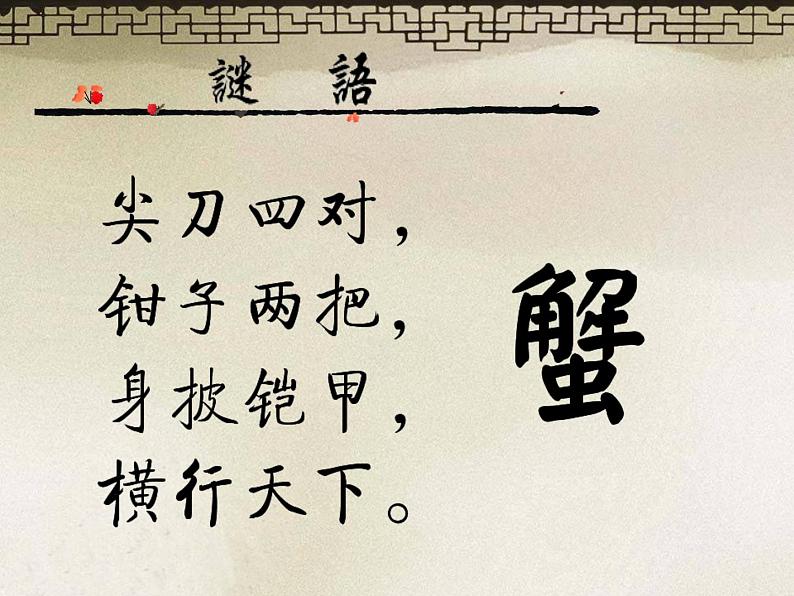 謎語
尖刀四对，
钳子两把，
身披铠甲，
横行天下。
蟹